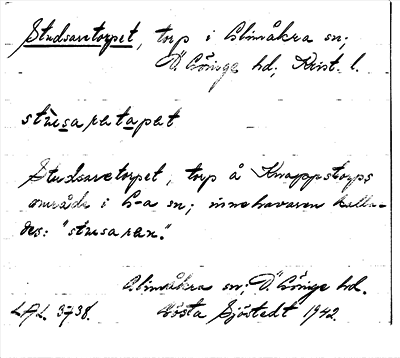 Studsaretorpet, torp i Glimåkra sn;
Ö. Göinge hd, Krist. l.
stusaretapat
Studsaretorpet, torp å Knappstorps
område i G-a sn; innehavaren kalla-
des: "stusaren."
Glimåkra sn; Ö. Göinge hd.
L.A.L. 3738. Gösta Sjöstedt 1942.